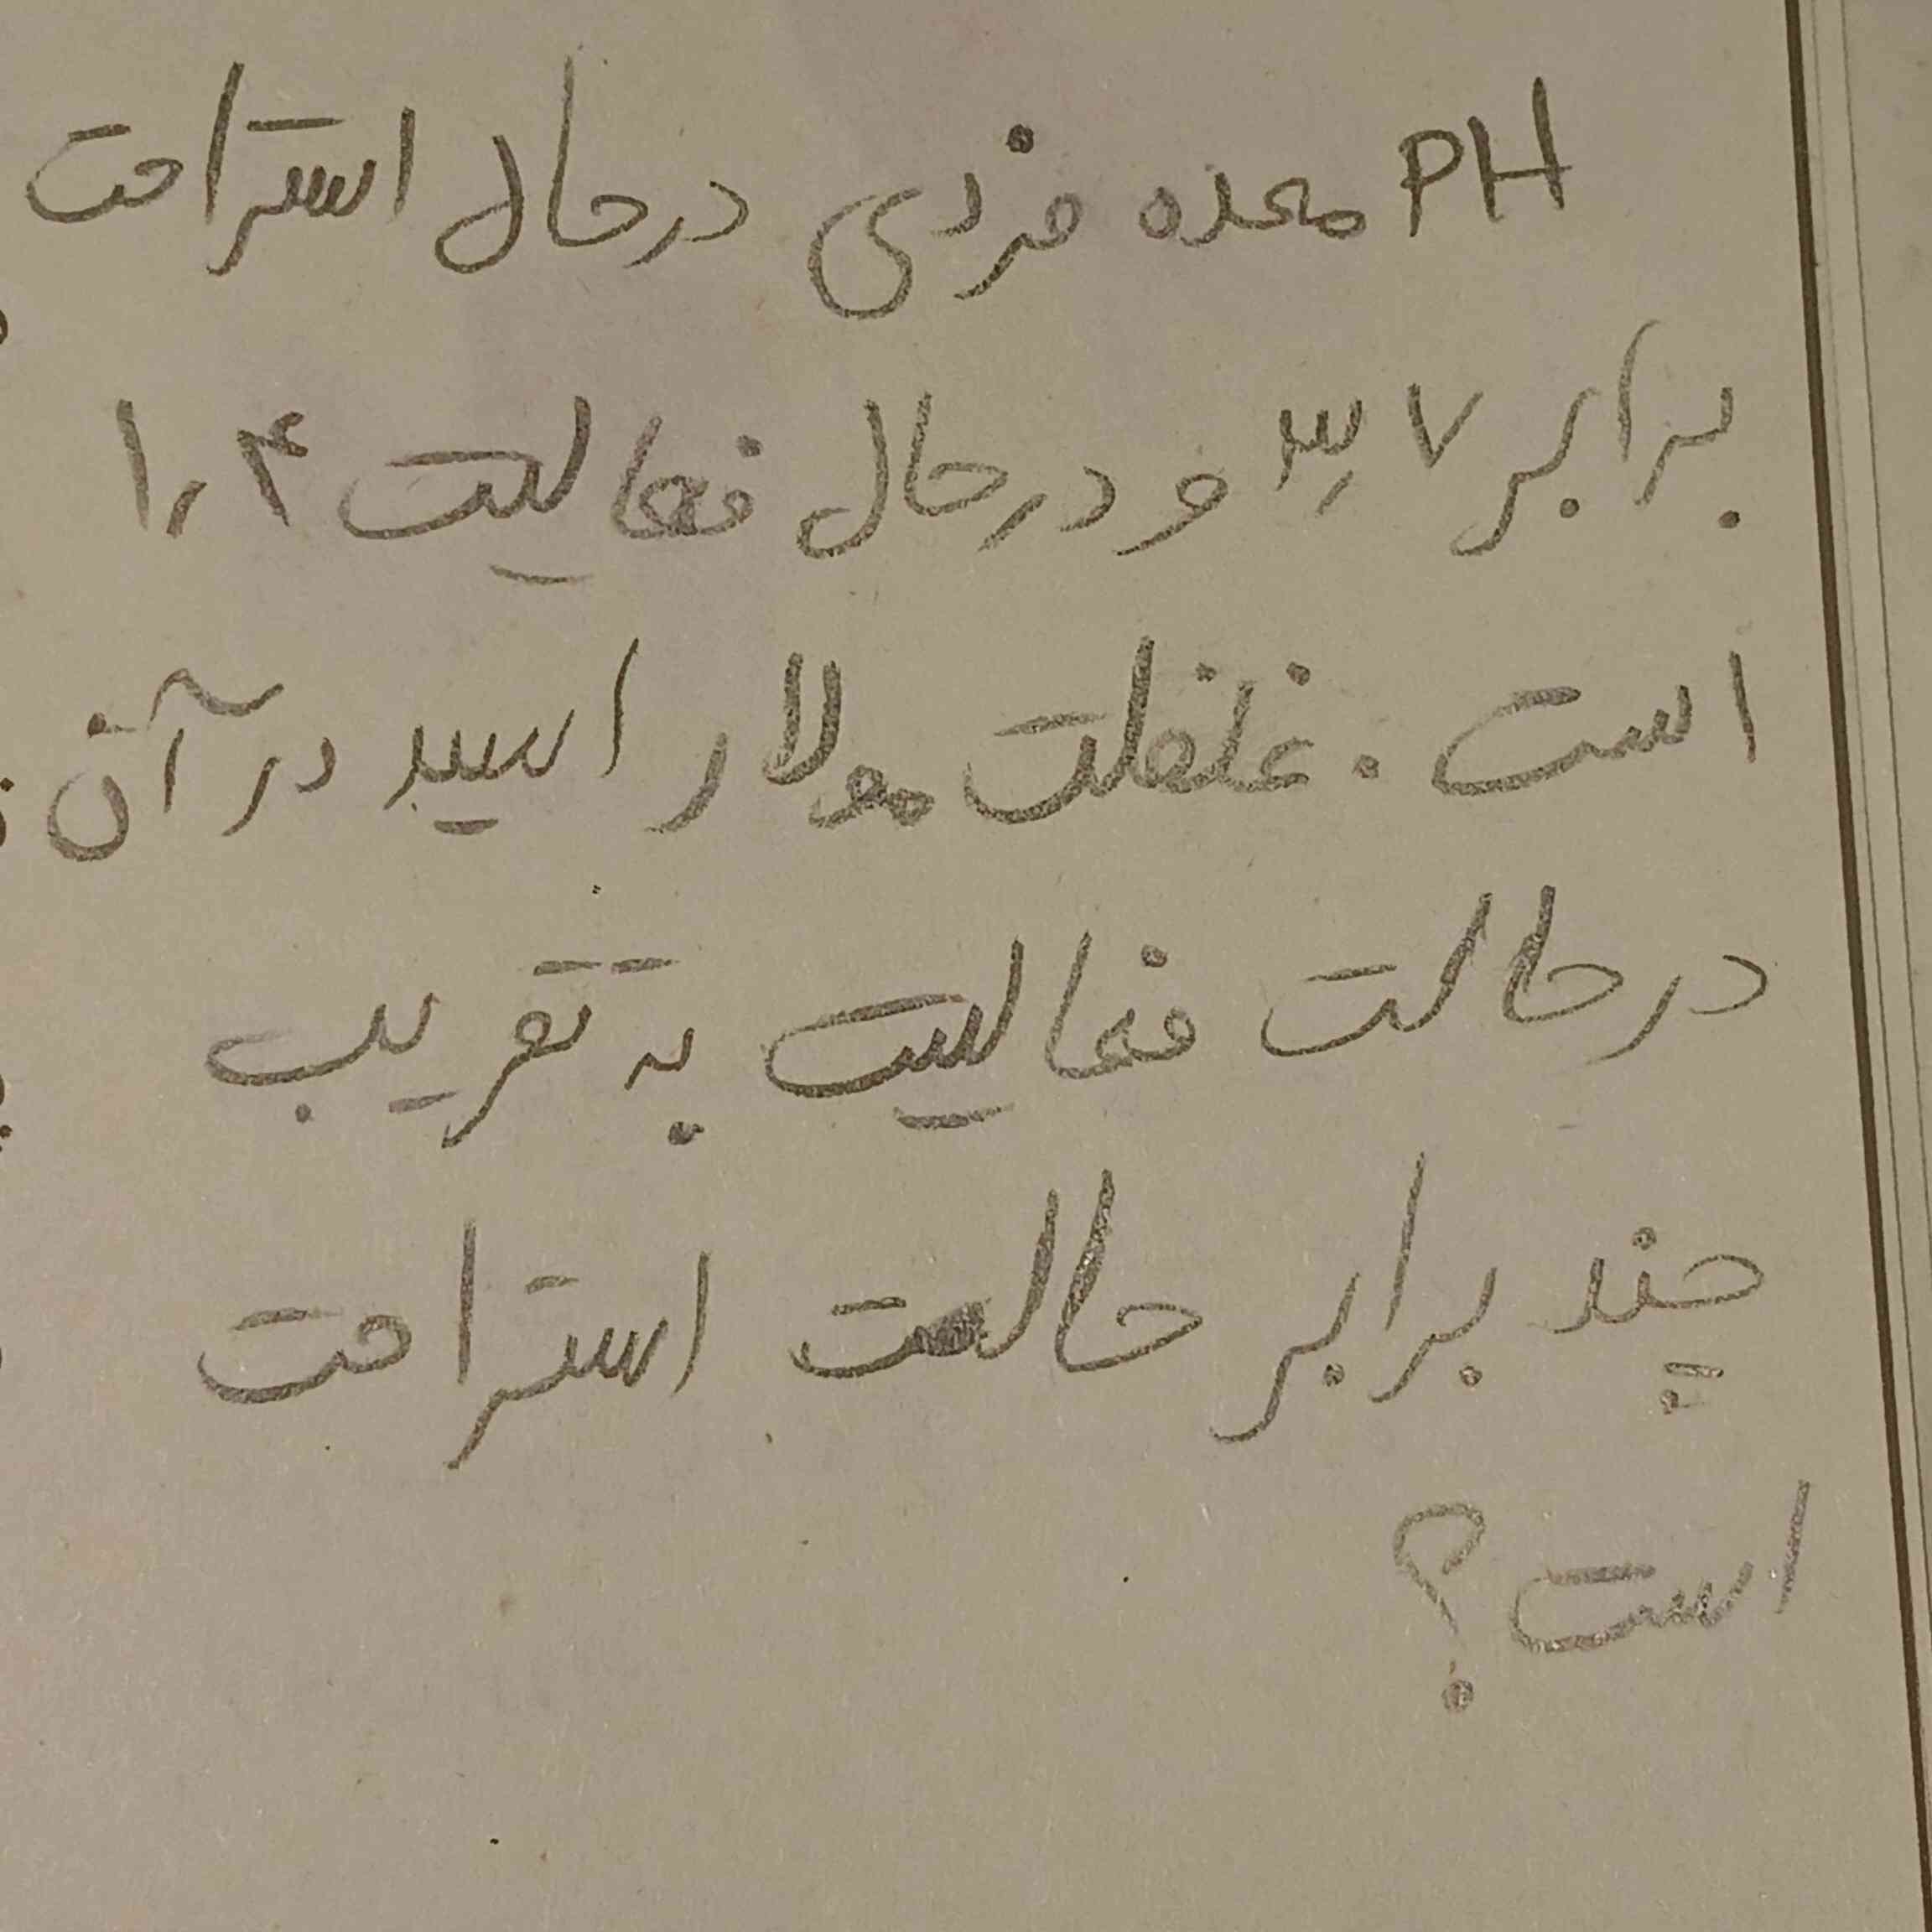 PH معده فردی درحال استراحت
برابر ۳٫۷ و درحال فعالیت ۱٫۴
است . غلظت مولار اسید در آن
درحالت فعالیت به تقریب
چند برابر حالت استراحت
است ؟